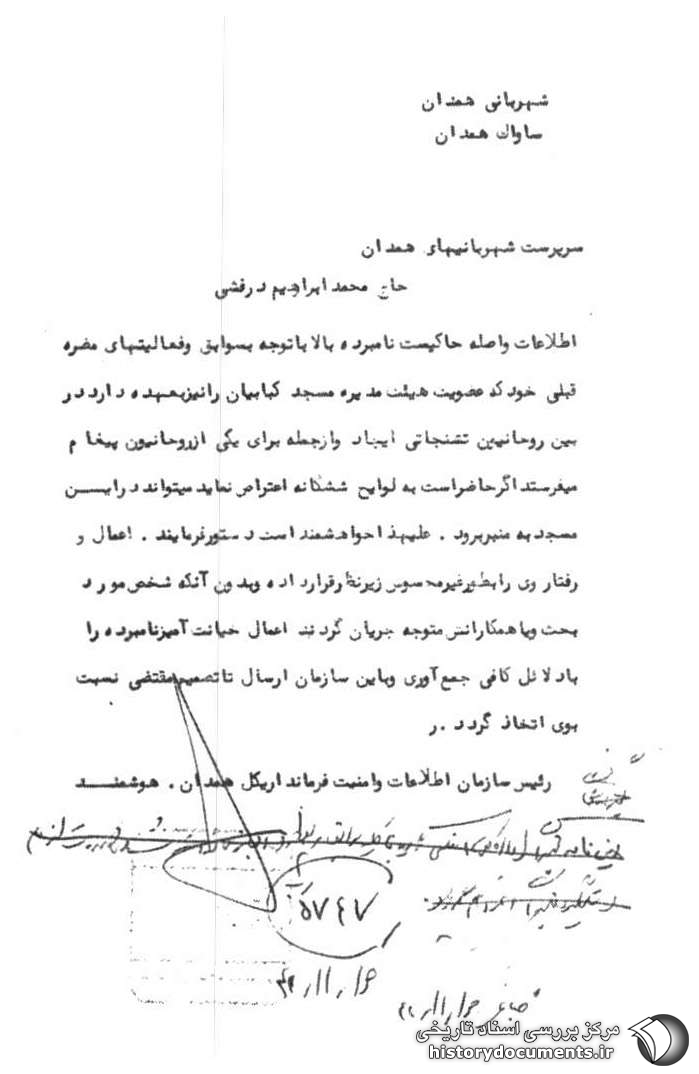 شهربانی همدان
ساواک همدان
سرپرست شهربانیهای همدان
حاج محمد ابراهیم درفشی
اطلاعات واصله حاکیست نامبرده بالا باتوجه بسوابق وفعالیتهای مضره
قبلی خود که عضویت هیئت مدیره مسجد کبابیان رانیزبعهده دارد در
بین روحانیین تشنجاتی ایجاد وازجمله برای یکی ازروحانیون پیغام
میفرستد اگرحاضراست به لوایح ششگانه اعتراض نماید میتواند دراین
مسجد به منبر برود . علیهذا خواهشمند است دستورفرمایند . اعمال و
رفتار وی رابطورغیرمحسوس زیرنظرقرارداده وبدون آنکه شخص مورد
بحث ویاهمکارانش متوجه جریان گردند اعمال خیانت آمیزنامبرده را
بادلائل کافی جمع آوری وباین سازمان ارسال تاتصمیم مقتضی نسبت
بوی اتخاذ گردد .ر
رئیس سازمان اطلاعات وامنیت فرمانداریکل همدان . هوشمند
۵۷۴۷
مرکز بررسی اسناد تاریخی
historydocuments.ir